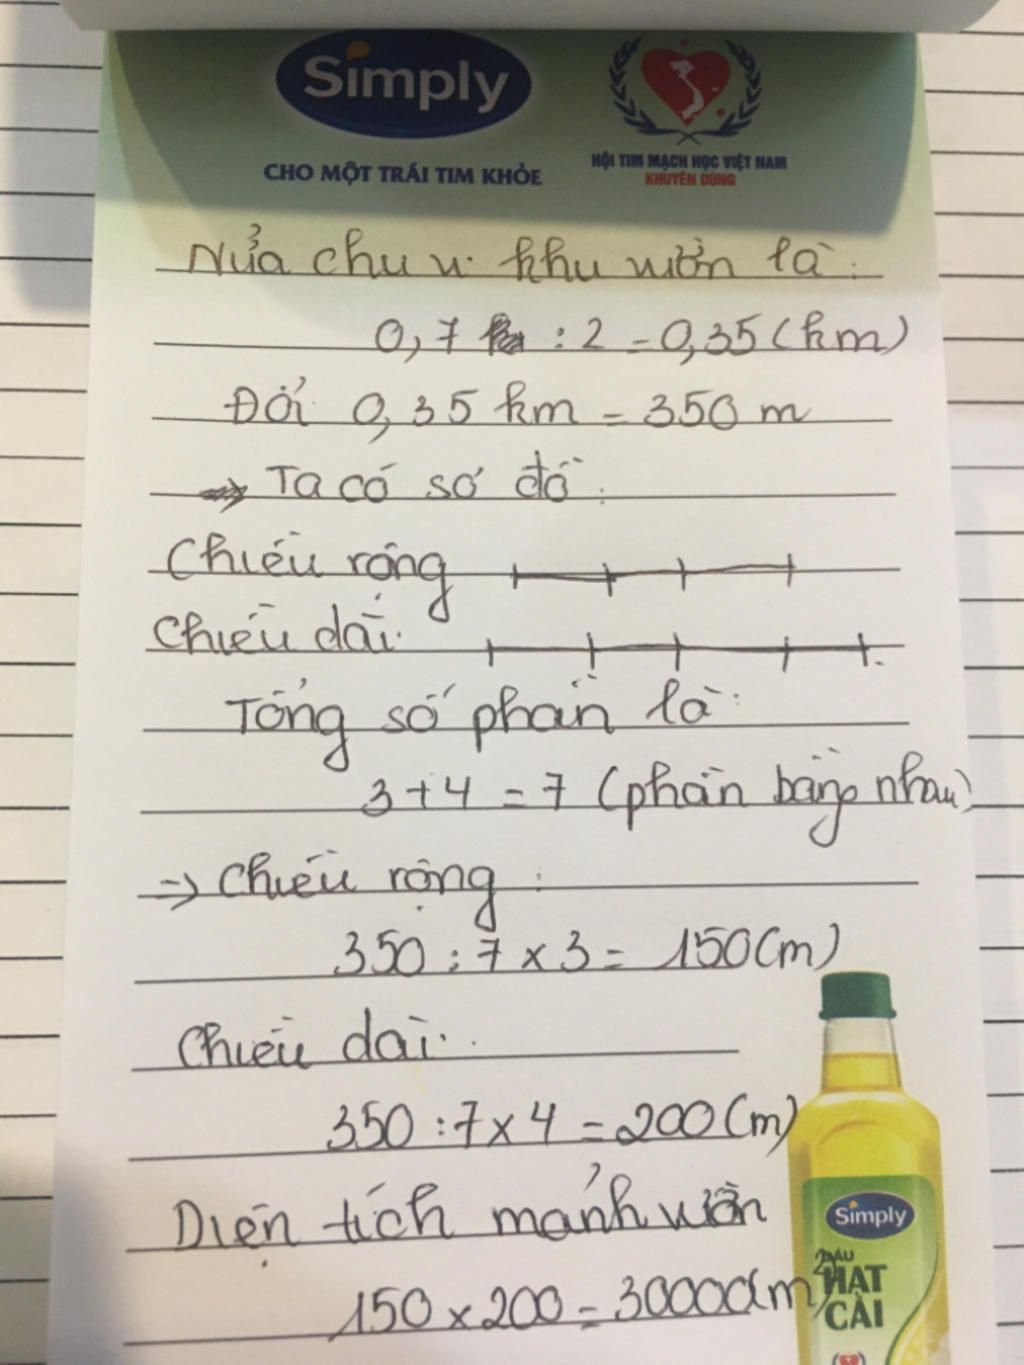 Simply
CHO MỘT TRÁI TIM KHỎE
HỘI TIM MẠCH HỌC VIỆT NAM
KHUYÊN DÙNG
Nửa chu vi khu vườn là:
0,7 : 2 = 0,35 (km)
Đổi 0,35 km = 350 m
→ Ta có sơ đồ:
Chiều rộng
Chiều dài
Tổng số phần là:
3 + 4 = 7 (phần bằng nhau)
→ Chiều rộng:
350 : 7 x 3 = 150 (m)
Chiều dài:
350 : 7 x 4 = 200 (m)
Diện tích mảnh vườn
150 x 200 = 30000 (m²)
Simply
DẦU
HẠT
CẢI